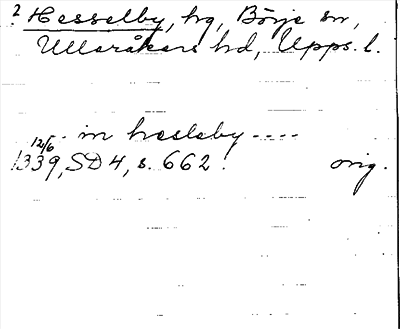 ? Hesselby, hg, Börje sn,
Ulleråkers hd, Upps. l.
.. in hesleby ----
12/6
1339, SD 4, s. 662. orig.